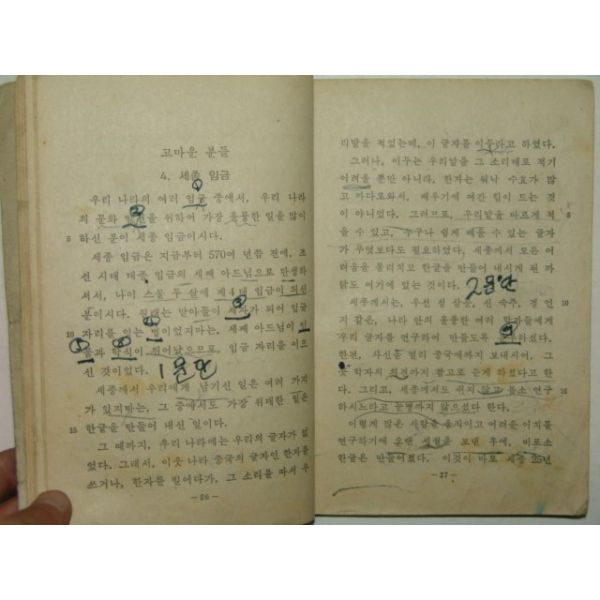 고마운 분들
4. 세종 임금
우리 나라의 여러 임금 중에서, 우리 나라
의 문화 발전을 위하여 가장 훌륭한 일을 많이
5 하신 분이 세종 임금이시다.
세종 임금은 지금부터 570여 년쯤 전에, 조
선 시대 태종 임금의 세째 아드님으로 탄생하
셔서, 나이 스물 두 살에 제 4 대 임금이 되신
분이시다. 원래는 맏아들이 세자가 되어 임금
10 자리를 잇는 법이었지마는, 세째 아드님이 인
품과 학식이 뛰어났으므로, 임금 자리를 이으
신 것이었다. 1문단
세종께서 우리에게 남기신 일은 여러 가지
가 있지마는, 그 중에서도 가장 위대한 일은
15 한글을 만들어 내신 일이다.
그 때까지, 우리 나라에는 우리의 글자가 없
었다. 그래서, 이웃 나라 중국의 글자인 한자를
쓰거나, 한자를 빌어다가, 그 소리를 따서 우
- 26 -
리말을 적었는데, 이 글자를 이두라고 하였다.
그러나, 이두는 우리말을 그 소리대로 적기
어려울 뿐만 아니라, 한자는 워낙 수효가 많
고 까다로와서, 배우기에 여간 힘이 드는 것
이 아니었다. 그러므로, 우리말을 바르게 적 5
을 수 있고, 누구나 쉽게 배울 수 있는 글자
가 무엇보다도 필요하였다. 세종께서 모든 어
려움을 물리치고 한글을 만들어 내시게 된 까
닭도 여기에 있는 것이다. 2문단
세종께서는, 우선 성 삼문, 신 숙주, 정 인 10
지 같은, 나라 안의 훌륭한 여러 학자들에게
우리 글자를 연구하여 만들도록 하셨다.
한편, 사신을 멀리 중국에까지 보내시어, 그
곳 학자의 의견까지 참고로 듣게 하셨다고 한
다. 그리고, 세종께서도 쉬지 않고 몸소 연구 15
하시느라고 눈병까지 앓으셨다 한다.
이렇게 많은 사람을 움직이고 어려운 이치를
연구하기에 오랜 세월을 보낸 후에, 비로소
한글은 만들어졌다. 이것이 바로 세종 25년
- 27 -